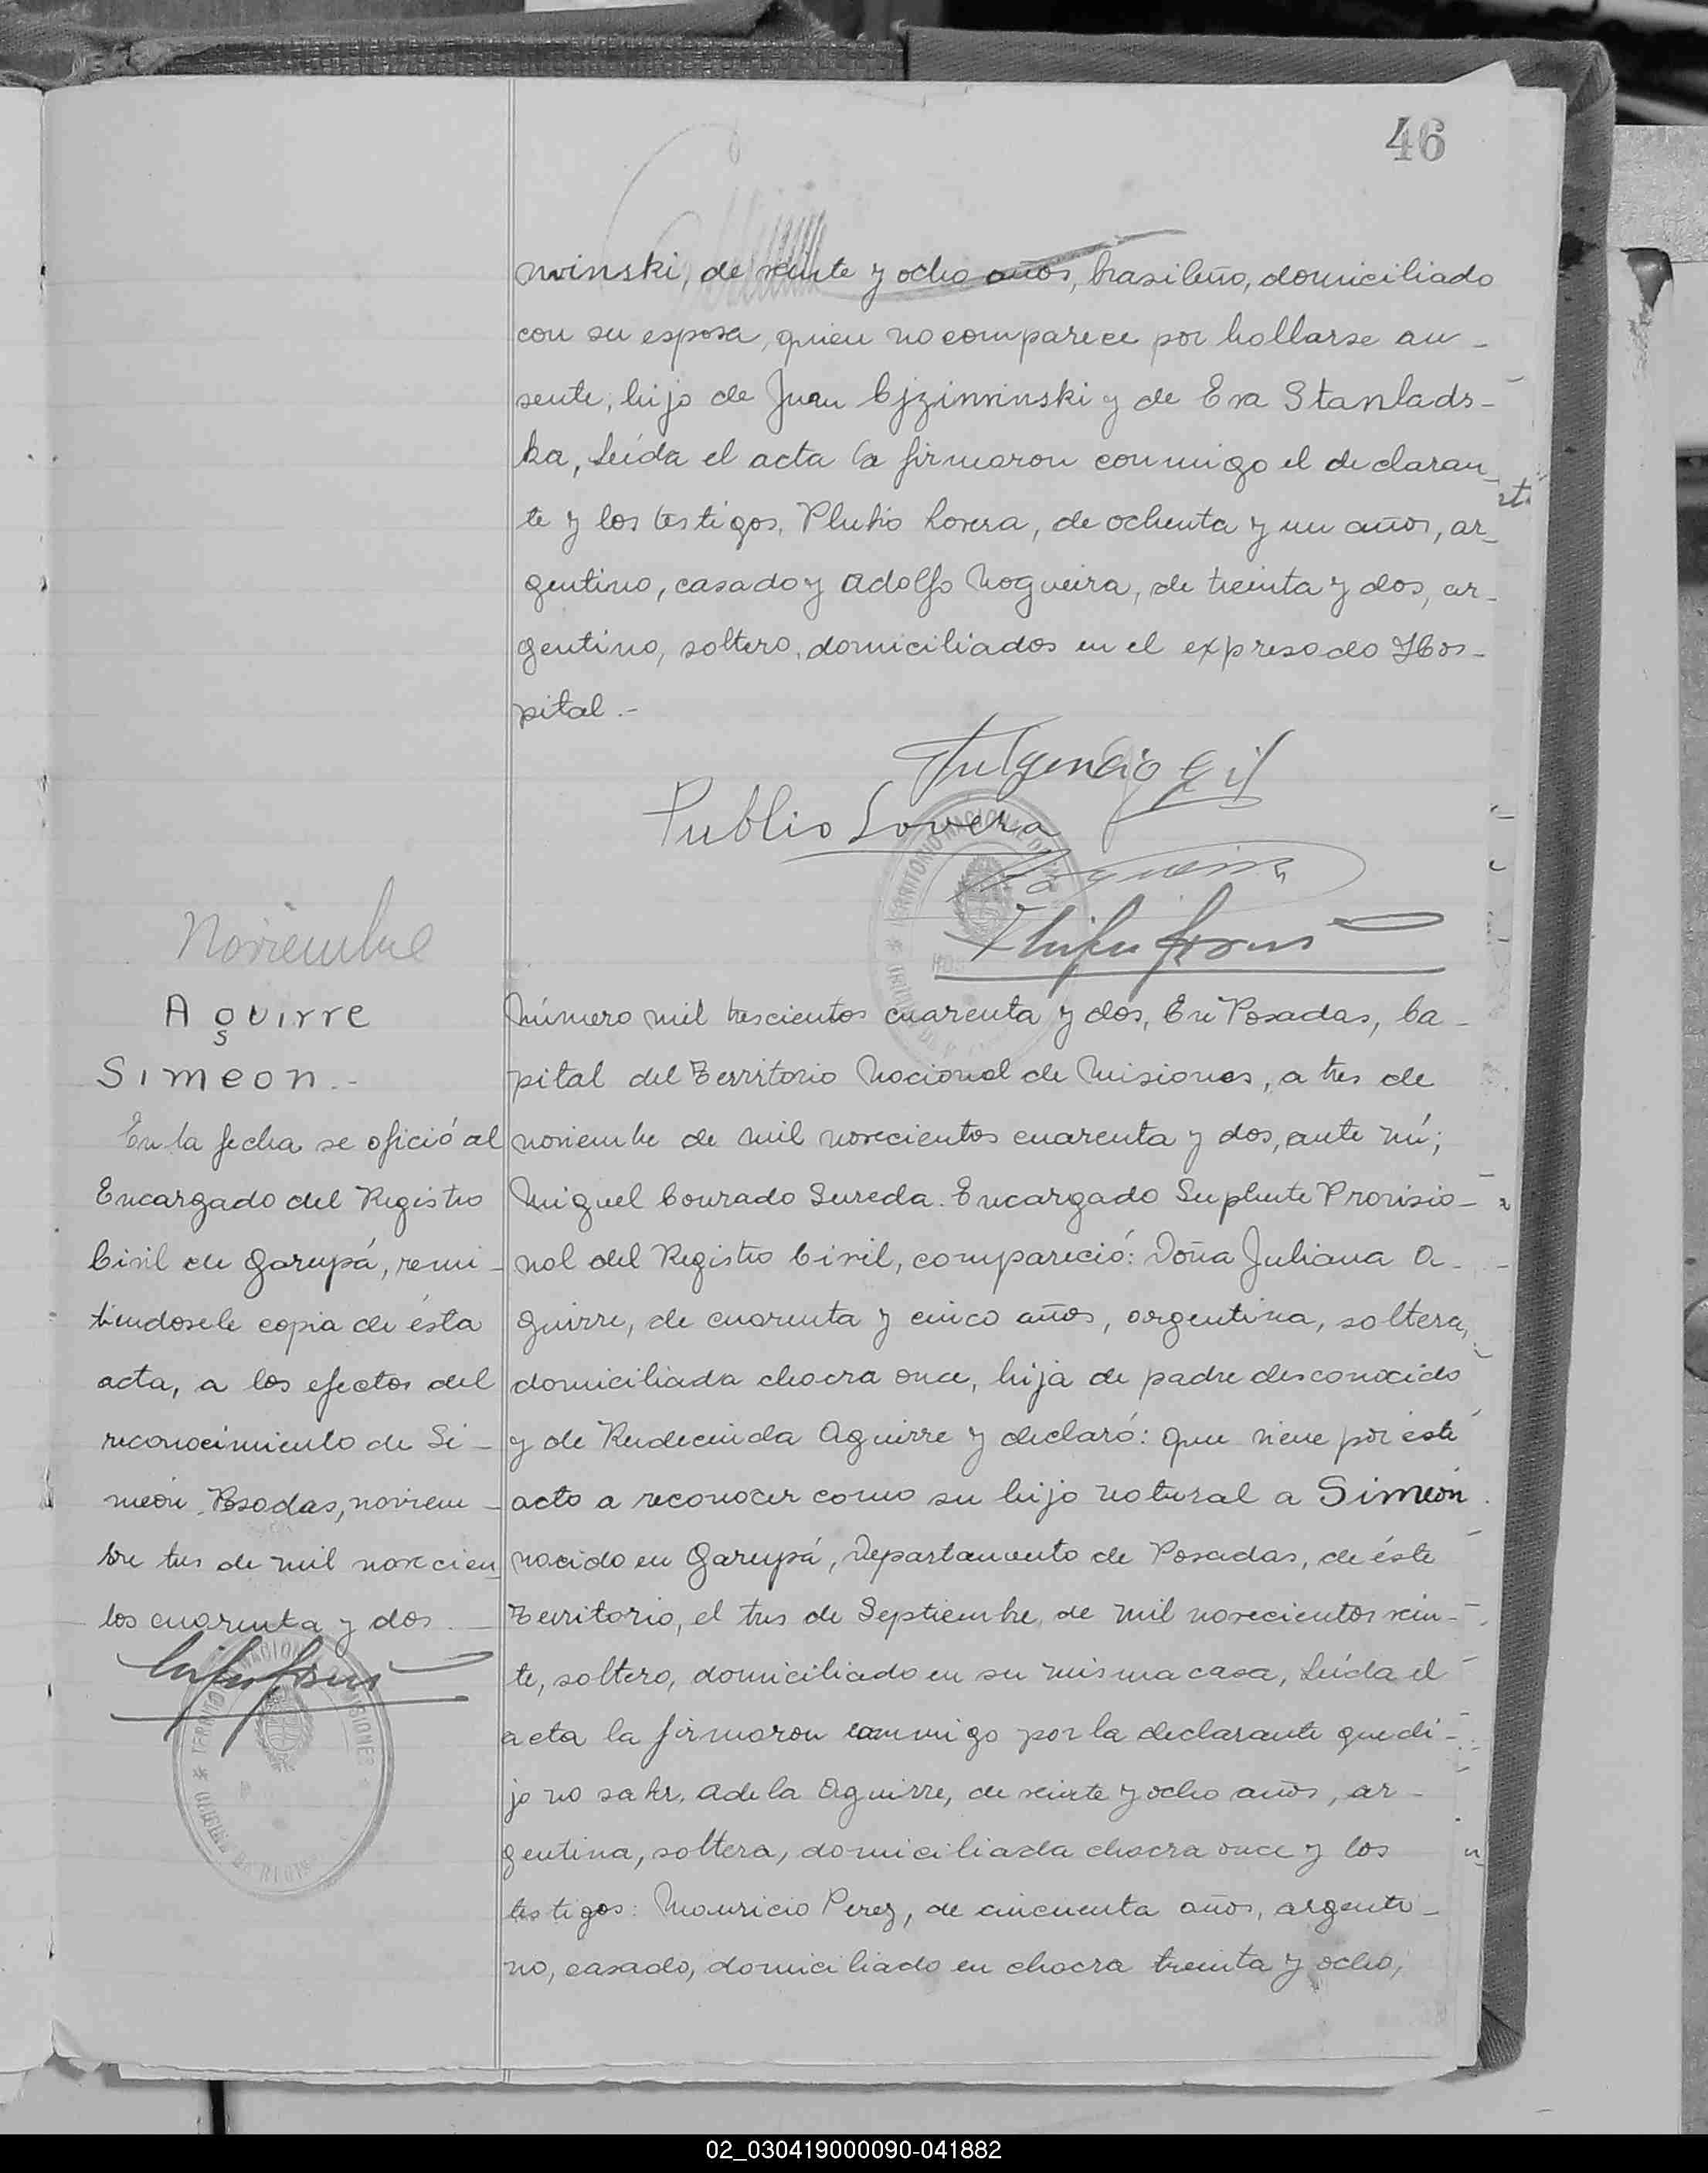 46
winski, de veinte y ocho años, brasileño, domiciliado
con su esposa, quien no comparece por hallarse au-
sente, hijo de Juan Cjzinvinski y de Eva Stanlads-
ka, Leída el acta la firmaron conmigo el declaran-
te y los testigos, Plubio Lovera, de ochenta y un años, ar-
gentino, casado y Adolfo Nogueira, de treinta y dos, ar-
gentino, soltero, domiciliados en el expresado Hos-
pital.-
Fulgencio Gil
Publio Lovera
Noviembre
Aguirre
Simeon.-
En la fecha se ofició al
Encargado del Registro
Civil de Garupá, remi-
tiendosele copia de ésta
acta, a los efectos del
reconocimiento de Si-
meón. Posadas, noviem-
bre tres de mil novecien
tos cuarenta y dos.-
Número mil trescientos cuarenta y dos, En Posadas, Ca-
pital del Territorio Nacional de Misiones, a tres de
noviembre de mil novecientos cuarenta y dos, ante mí;
Miguel Conrado Sureda. Encargado Suplente Provisio-
nal del Registro Civil, compareció: Doña Juliana A-
guirre, de cuarenta y cinco años, argentina, soltera,
domiciliada chacra once, hija de padre desconocido
y de Rudecinda Aguirre y declaró: Que viene por éste
acto a reconocer como su hijo natural a Simeón
nacido en Garupá, Departamento de Posadas, de éste
Territorio, el tres de Septiembre, de mil novecientos vein-
te, soltero, domiciliado en su misma casa, Leída el
acta la firmaron conmigo por la declarante que di-
jo no saber, Adela Aguirre, de veinte y ocho años, ar-
gentina, soltera, domiciliada chacra once y los
testigos: Mauricio Perez, de cincuenta años, argenti-
no, casado, domiciliado en chacra treinta y ocho,
02_030419000090-041882